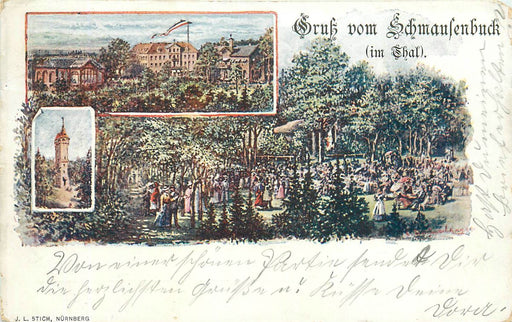 Gruß vom Schmausenbuck
(im Thal).
Von einer schönen Partie sendet Dir
die herzlichsten Grüße u. Küsse Deine
Dora.
J. L. STICH, NÜRNBERG